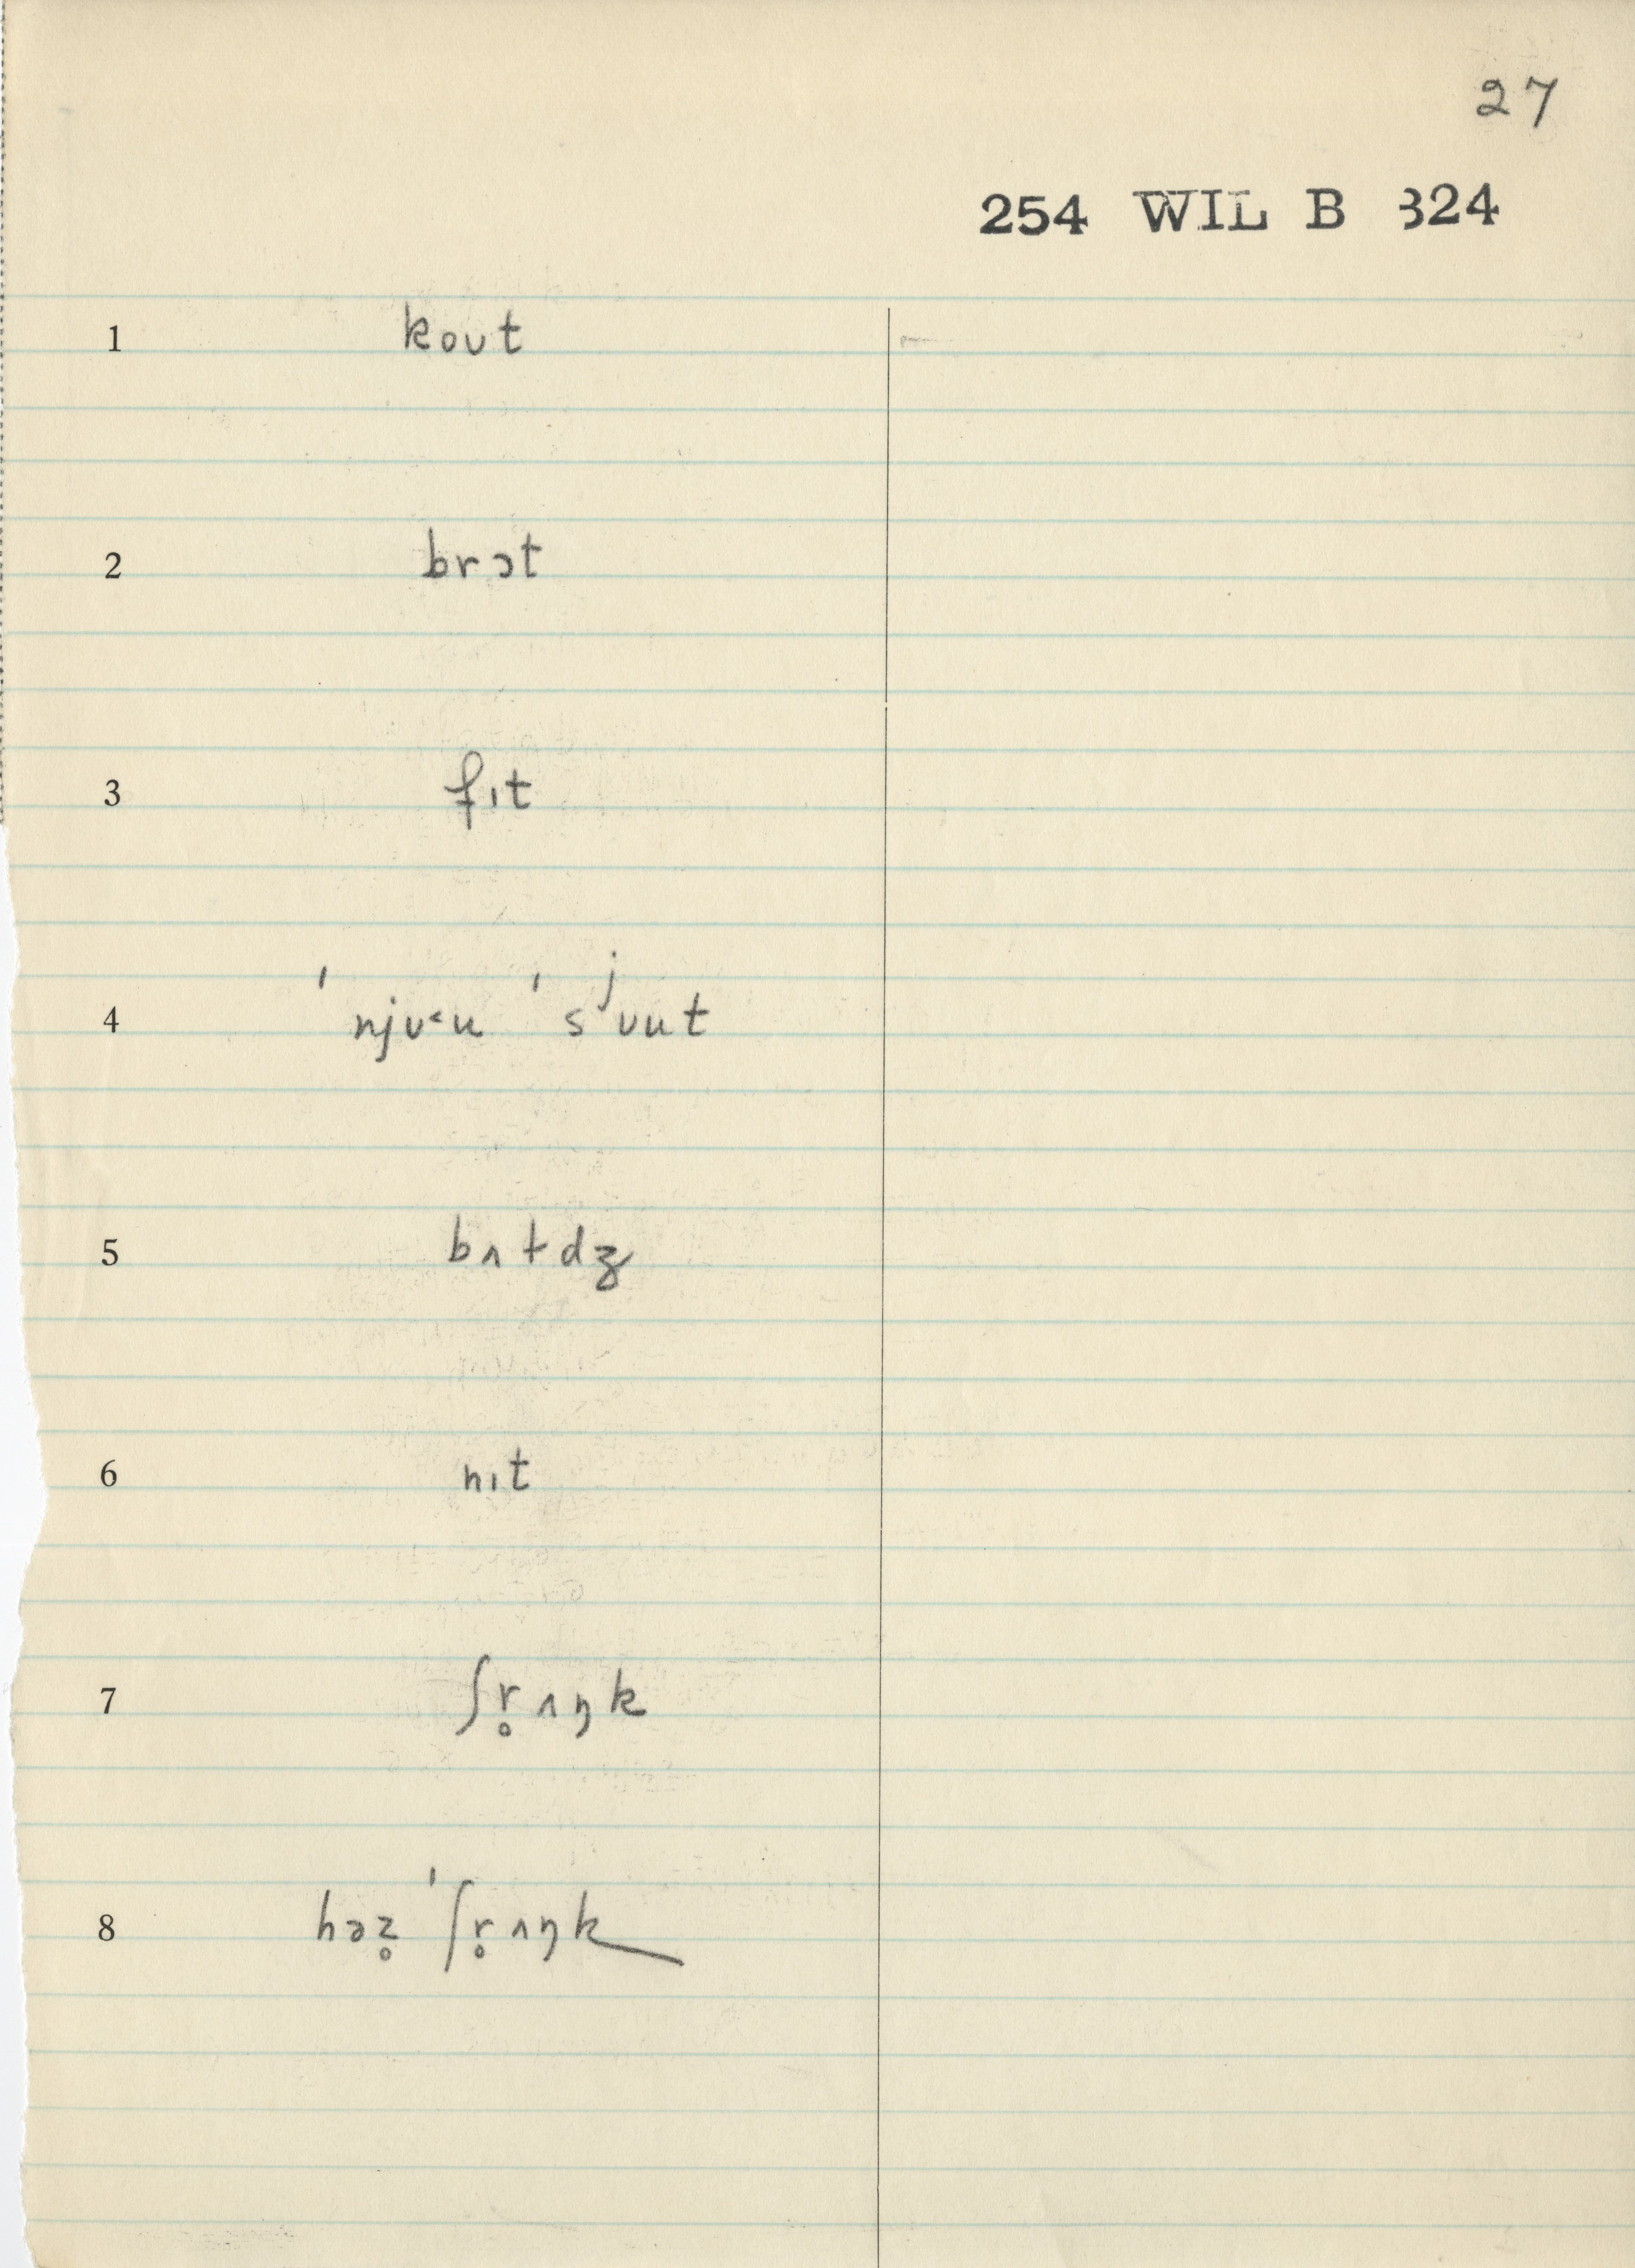 27
254 WIL B 324
1 koʊt
2 brɔt
3 fɪt
4 ˈnjʊ˂u ˈsʲʊut
5 bʌtdʒ
6 nɪt
7 ʃr̥ʌŋk
8 həz̥ ˈʃr̥ʌŋk